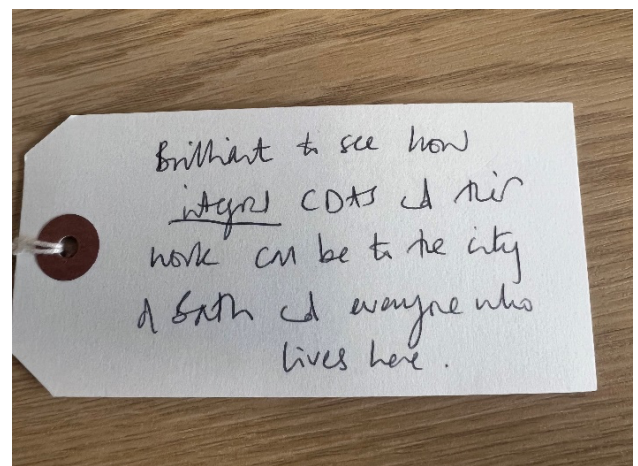 Brilliant to see how
integral CDAS and their
work can be to the city
of Bath and everyone who
lives here.